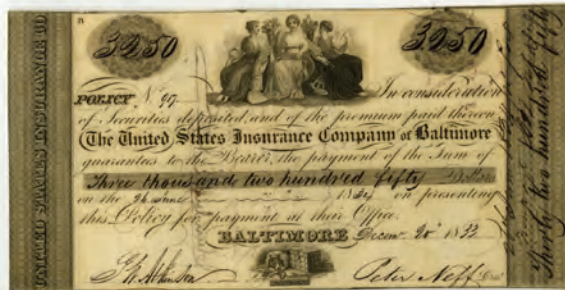 3250 3250
POLICY N. 97. In consideration
of Securities deposited, and of the premium paid thereon
The United States Insurance Company of Baltimore
guaranties to the Bearer, the payment of the Sum of
Three thousand two hundred fifty Dollars
on the 26 June 1834 on presenting
this Policy for payment at their Office.
BALTIMORE Decem 20 1833
Peter Neff
UNITED STATES INSURANCE CO
Thirty two hundred fifty